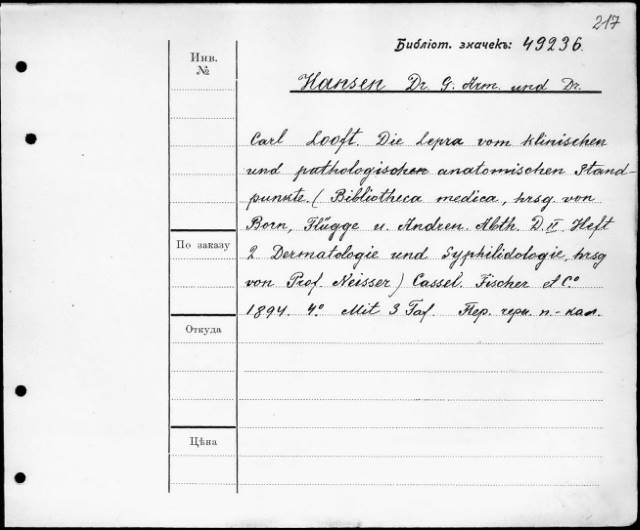 217
Библіот. значекъ: 49236.
Инв.
№
Hansen Dr. G. Arm. und Dr.
Carl Looft. Die Lepra vom klinischen
und pathologischen anatomischen Stand-
punkte. (Bibliotheca medica, hrsg. von
Born, Flügge u. Andren. Abth. D. II. Heft
По заказу
2 Dermatologie und Syphilidologie, hrsg
von Prof. Neisser) Cassel. Fischer et Co.
1894. 4.° Mit 3 Taf. Пер. черн. п.-кал.
Откуда
Цѣна